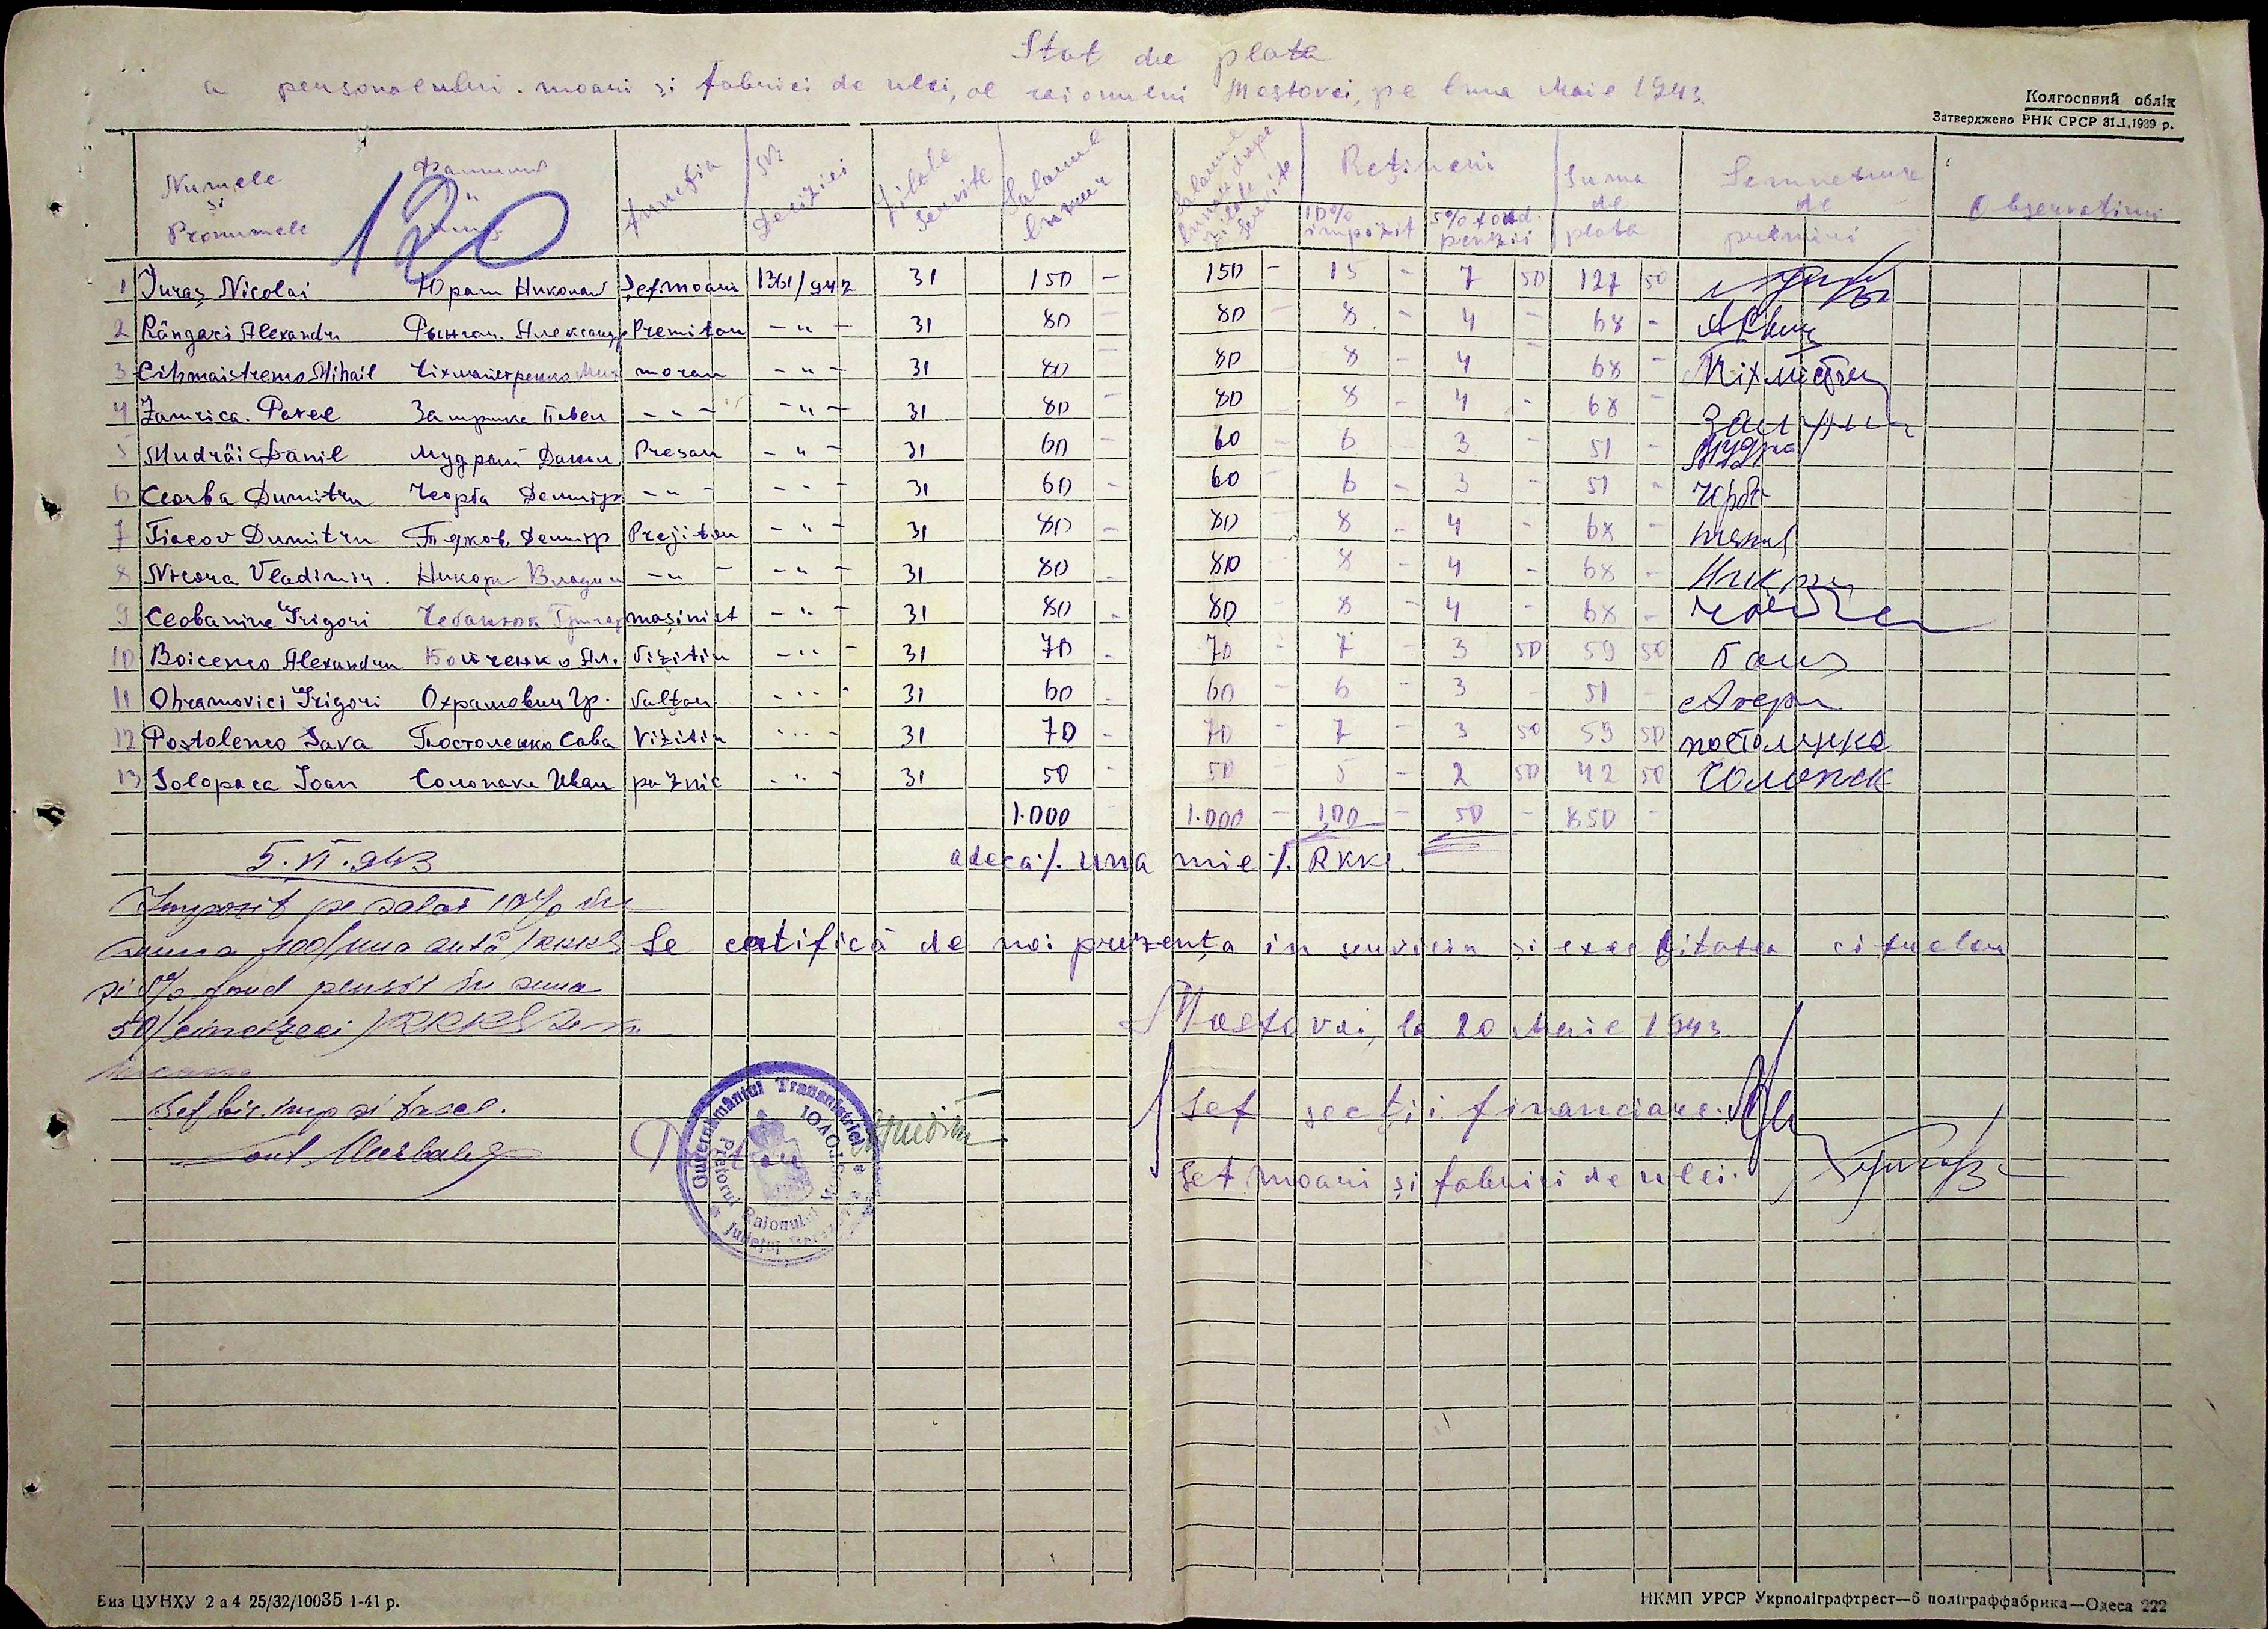 Stat de plata
a personalului moari și fabricei de ulei, al raionului Mostovoi, pe luna Maie 1943.
Колгоспний облік
Затверджено РНК СРСР 31.1.1939 р.
120
Numele și Pronumele Funcția Nr. deciziei Zilele servite Salarul lunar Salarul lunar dupa zilele servite Rețineri Suma de plata Semnatura de primirii Observatiuni
10% impozit 5% fond. penzii
1 Iuraș Nicolai Юраш Николай Șef. moari 1361/942 31 150 - 150 - 15 - 7 50 127 50
2 Rângaci Alexandru Рынгач. Александр Premitor - " - 31 80 - 80 - 8 - 4 - 68 -
3 Cihmaistrenco Mihail Чіхмайстренко Мих morar - " - 31 80 - 80 - 8 - 4 - 68 - Чіхмістре
4 Zamrica. Pavel Замрика Павел - " - - " - 31 80 - 80 - 8 - 4 - 68 - Замрик
5 Mudrăi Danil Мудрай Данил Presar - " - 31 60 - 60 - 6 - 3 - 51 - Мудра
6 Ceorba Dumitru Чеорба Демитр - " - - " - 31 60 - 60 - 6 - 3 - 51 - Чорба
7 Tiacov Dumitru Тяжков Демитр Prejitor - " - 31 80 - 80 - 8 - 4 - 68 -
8 Nicora Vladimir. Никора Владим - " - - " - 31 80 - 80 - 8 - 4 - 68 - Никора
9 Ceobaniuc Grigori Чебанюк Григор mașinist - " - 31 80 - 80 - 8 - 4 - 68 -
10 Boicenco Alexandru Бойченко Ал. Vizitiu - " - 31 70 - 70 - 7 - 3 50 59 50
11 Ohramovici Grigori Охрамович Гр. Valțar - " - 31 60 - 60 - 6 - 3 - 51 -
12 Postolenco Sava Постоленко Сава Vizitiu - " - 31 70 - 70 - 7 - 3 50 59 50 постоленко
13 Solopaca Ioan Солопака Иван paznic - " - 31 50 - 50 - 5 - 2 50 42 50 Солопак
1.000 1.000 - 100 - 50 - 850 -
adeca ·/. una mie ·/. RKKS.
5.VI.943
Impozit pe salar 10% in
suma 100/una sută/RKKS
și 5% fond pensii in suma
50/cincizeci/RKKS
Se certifică de noi prezența in serviciu și exactitatea cifrelor
Mostovoi, la 20 Maie 1943
Șef bir. imp și taxe.
Șef secții financiare.
Șef moari și fabrici de ulei.
Pretor
Guvernământul Transnistriei
Pretorul Raionului
Județul
Биз ЦУНХУ 2 а 4 25/32/10035 1-41 р.
НКМП УРСР Укрполіграфтрест—6 поліграффабрика—Одеса 222